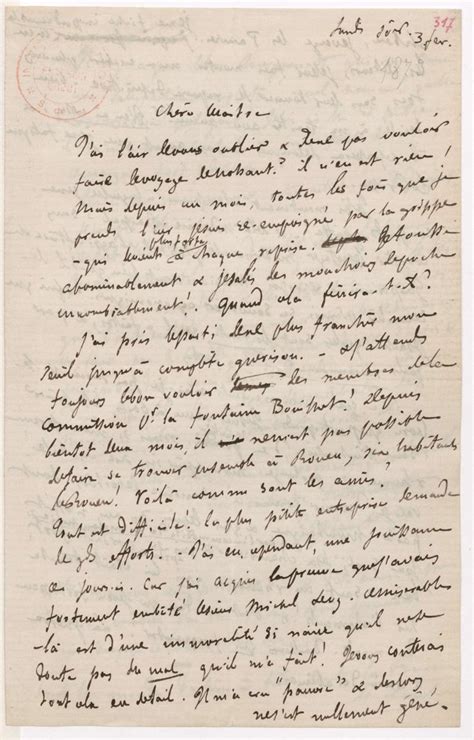 317
lundi soir. 3 fer.
1873
Chère Maître
J'ai l'air de vous oublier & de ne pas vouloir
faire le voyage de Nohant? il n'en est rien!
Mais depuis un mois, toutes les fois que je
prends l'air je suis re-empoigné par la grippe
plus forte
– qui devient à chaque reprise. Je tousse
abominablement & je salis des mouchoirs de poche
innombrablement! Quand cela finira-t-il?
J'ai pris le parti de ne plus franchir mon
seuil jusqu'à complète guérison. – & j'attends
toujours le bon vouloir des membres de la
commission pr la fontaine Bouilhet! Depuis
bientôt deux mois, il ne m'est pas possible
de faire se trouver ensemble à Rouen, six habitants
de Rouen! Voilà comme sont les amis!
Tout est difficile! la plus petite entreprise demande
de gds efforts. – J'ai eu, cependant, une jouissance
ces jours-ci. Car j'ai acquis la preuve que j'avais
fortement embêté le sieur Michel Levy. Ce misérable
-là est d'une immoralité si naïve qu'il ne se
doute pas du mal qu'il m'a fait! Je vous conterai
tout cela en détail. Il m'a cru "pauvre" & dès lors
ne s'est nullement gêné.